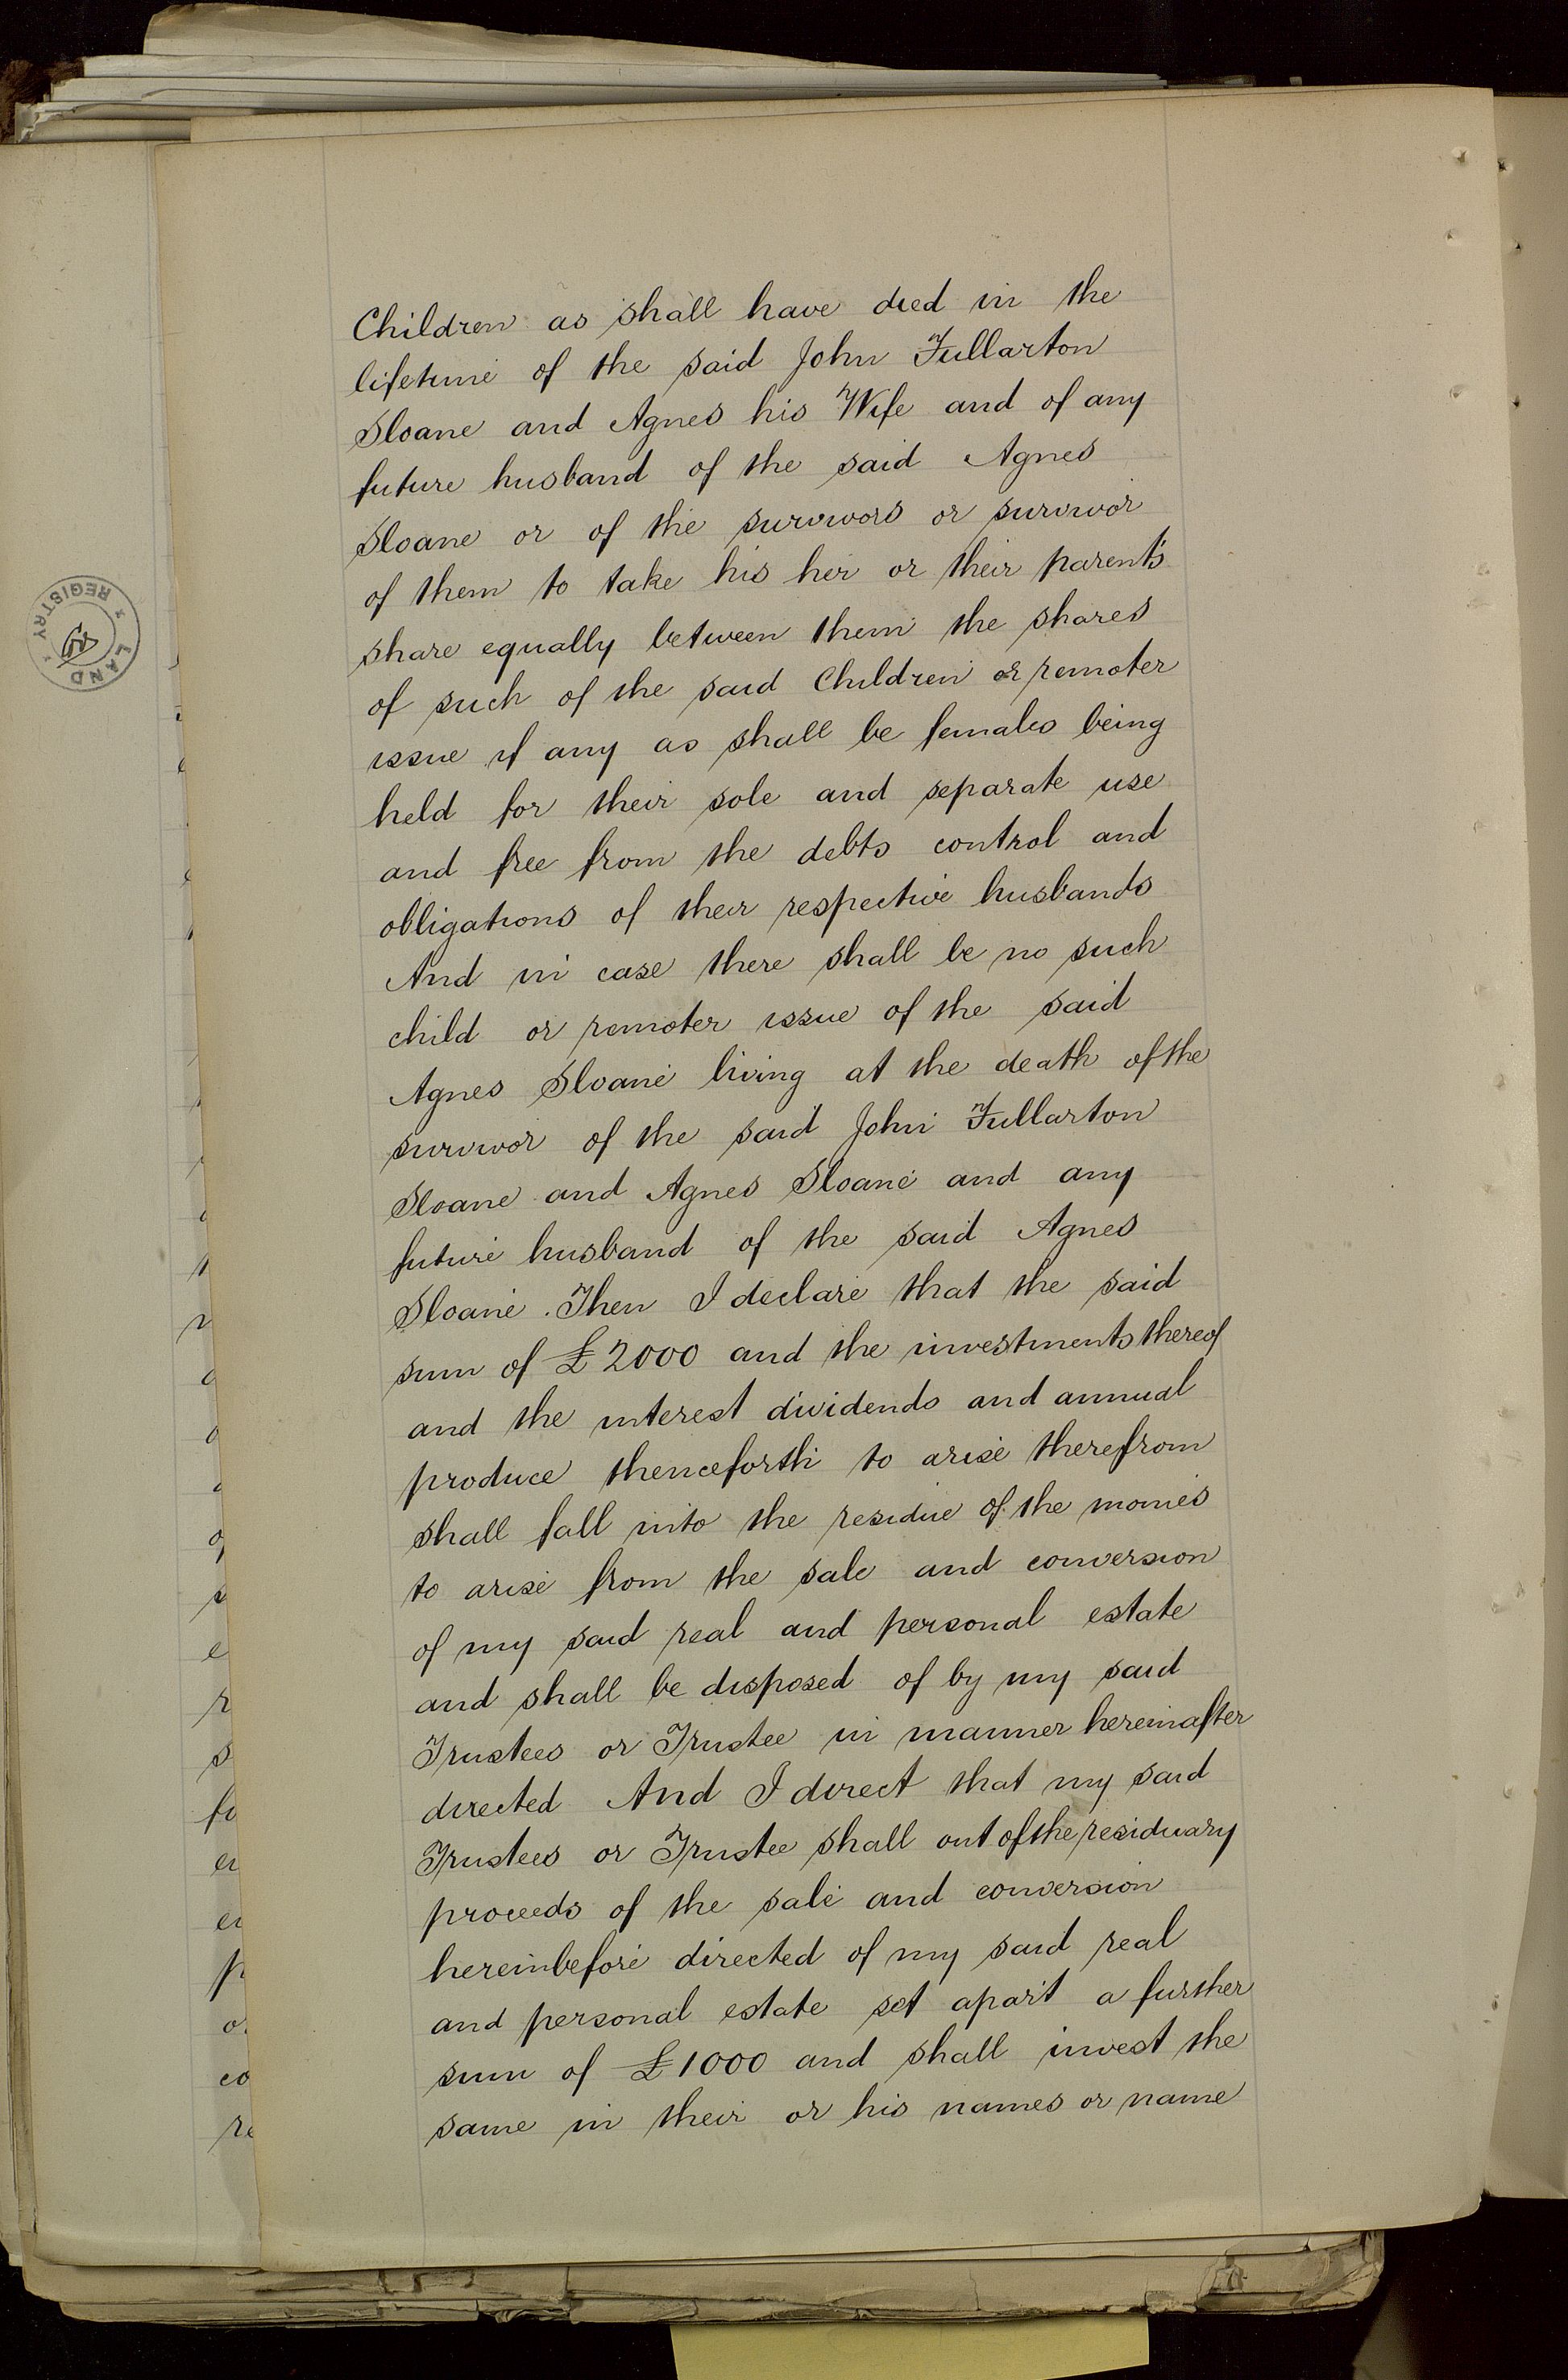 Children as shall have died in the
lifetime of the said John Fullarton
Sloane and Agnes his Wife and of any
future husband of the said Agnes
Sloane or of the survivors or survivor
of them to take his her or their parents
share equally between them the shares
of such of the said Children or remoter
issue if any as shall be females being
held for their sole and separate use
and free from the debts control and
obligations of their respective husbands
And in case there shall be no such
child or remoter issue of the said
Agnes Sloane living at the death of the
survivor of the said John Fullarton
Sloane and Agnes Sloane and any
future husband of the said Agnes
Sloane. Then I declare that the said
sum of £2000 and the investments thereof
and the interest dividends and annual
produce thenceforth to arise therefrom
shall fall into the residue of the monies
to arise from the sale and conversion
of my said real and personal estate
and shall be disposed of by my said
Trustees or Trustee in manner hereinafter
directed And I direct that my said
Trustees or Trustee shall out of the residuary
proceeds of the sale and conversion
hereinbefore directed of my said real
and personal estate set apart a further
sum of £1000 and shall invest the
same in their or his names or name
LAND REGISTRY